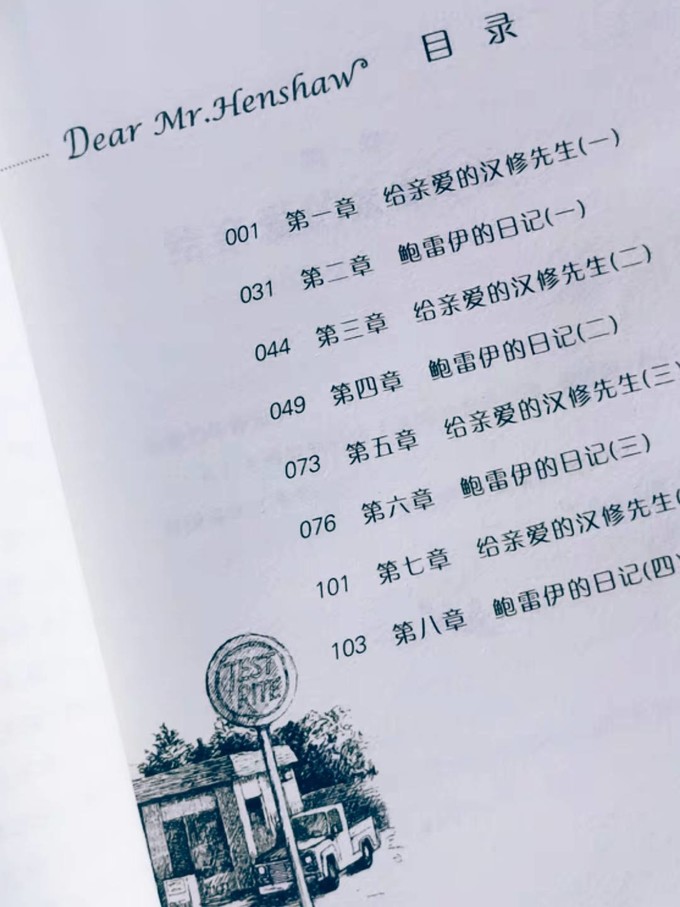 目 录
Dear Mr.Henshaw
001 第一章 给亲爱的汉修先生(一)
031 第二章 鲍雷伊的日记(一)
044 第三章 给亲爱的汉修先生(二)
049 第四章 鲍雷伊的日记(二)
073 第五章 给亲爱的汉修先生(三)
076 第六章 鲍雷伊的日记(三)
101 第七章 给亲爱的汉修先生(
103 第八章 鲍雷伊的日记(四)
TEST
RITE